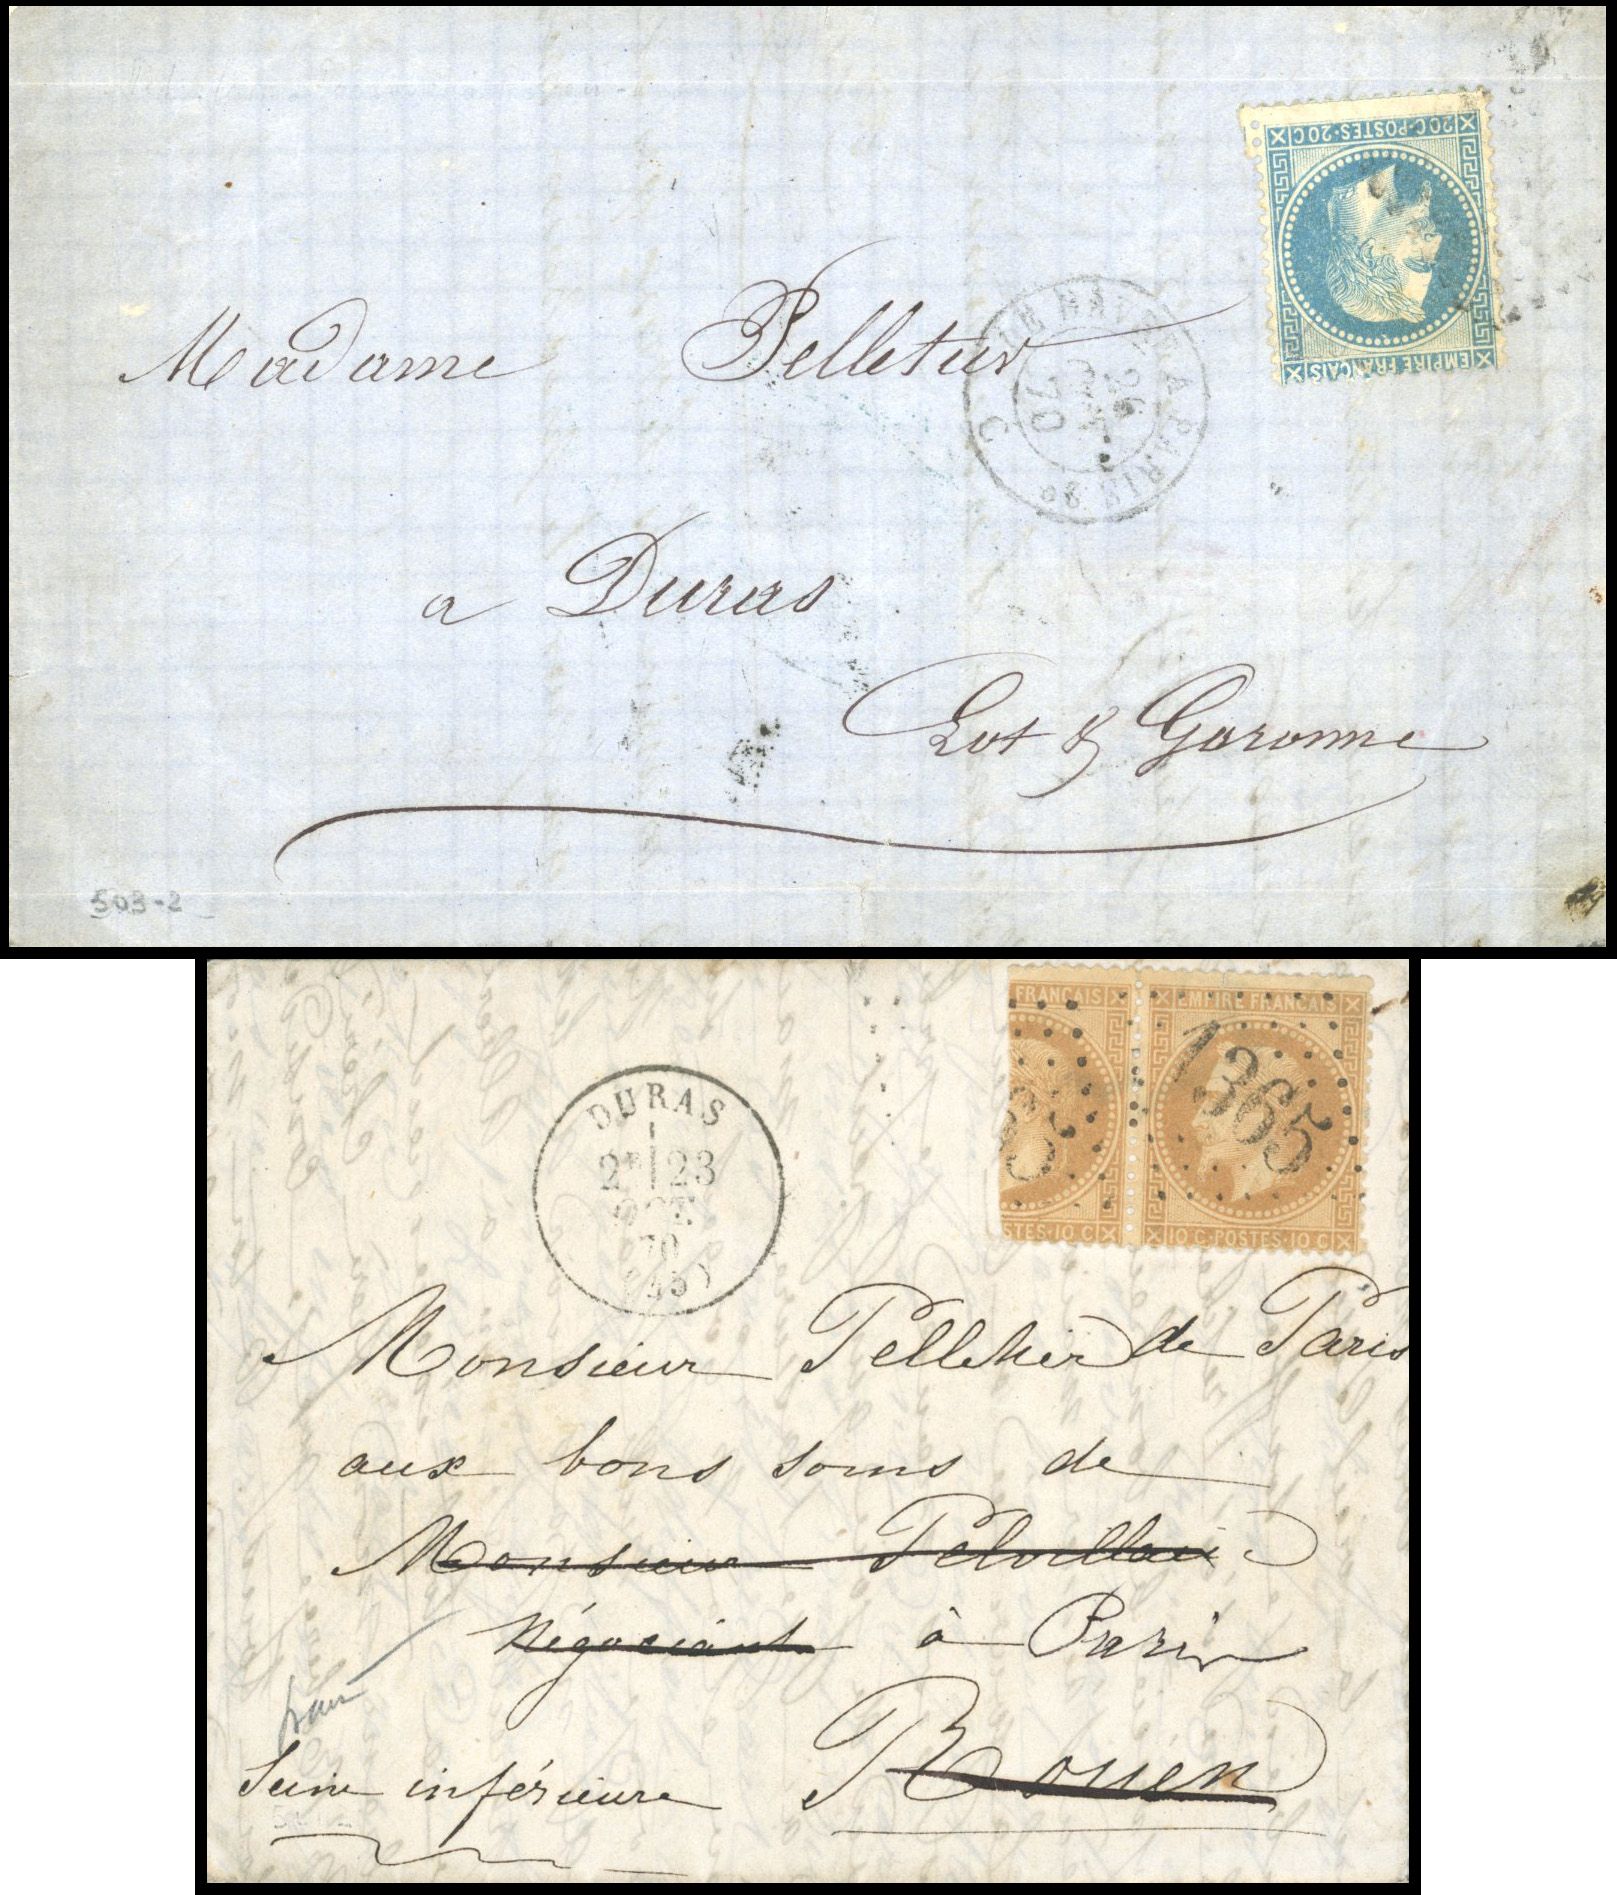 20C·POSTES·20C
EMPIRE FRANÇAIS
LE HAVRE A PARIS
24
OCT.
70
C
Madame Pelletier
a Duras
Lot & Garonne
503-2
FRANÇAIS EMPIRE FRANÇAIS
1365
STES·10C 10C·POSTES·10C
DURAS
2E 23
OCT.
70
(45)
Monsieur Pelletier de Paris
aux bons soins de
Monsieur
Négociant à Paris
Seine inférieure Rouen